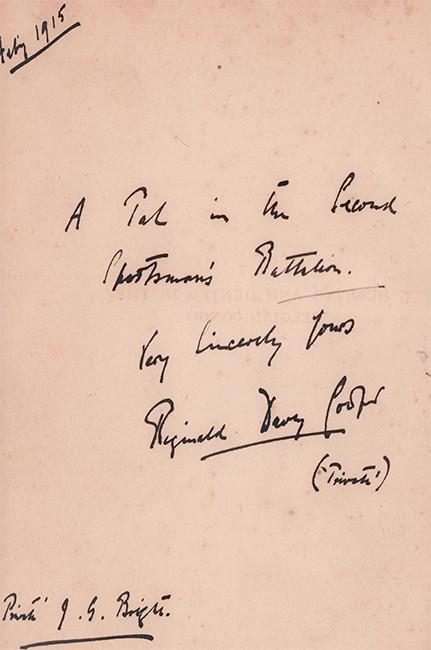 Feb'y 1915
A Pal in the Second
Sportsman's Battalion.
Very Sincerely Yours
Reginald Davey Cooper
('Private')
Private J. G. Bright.